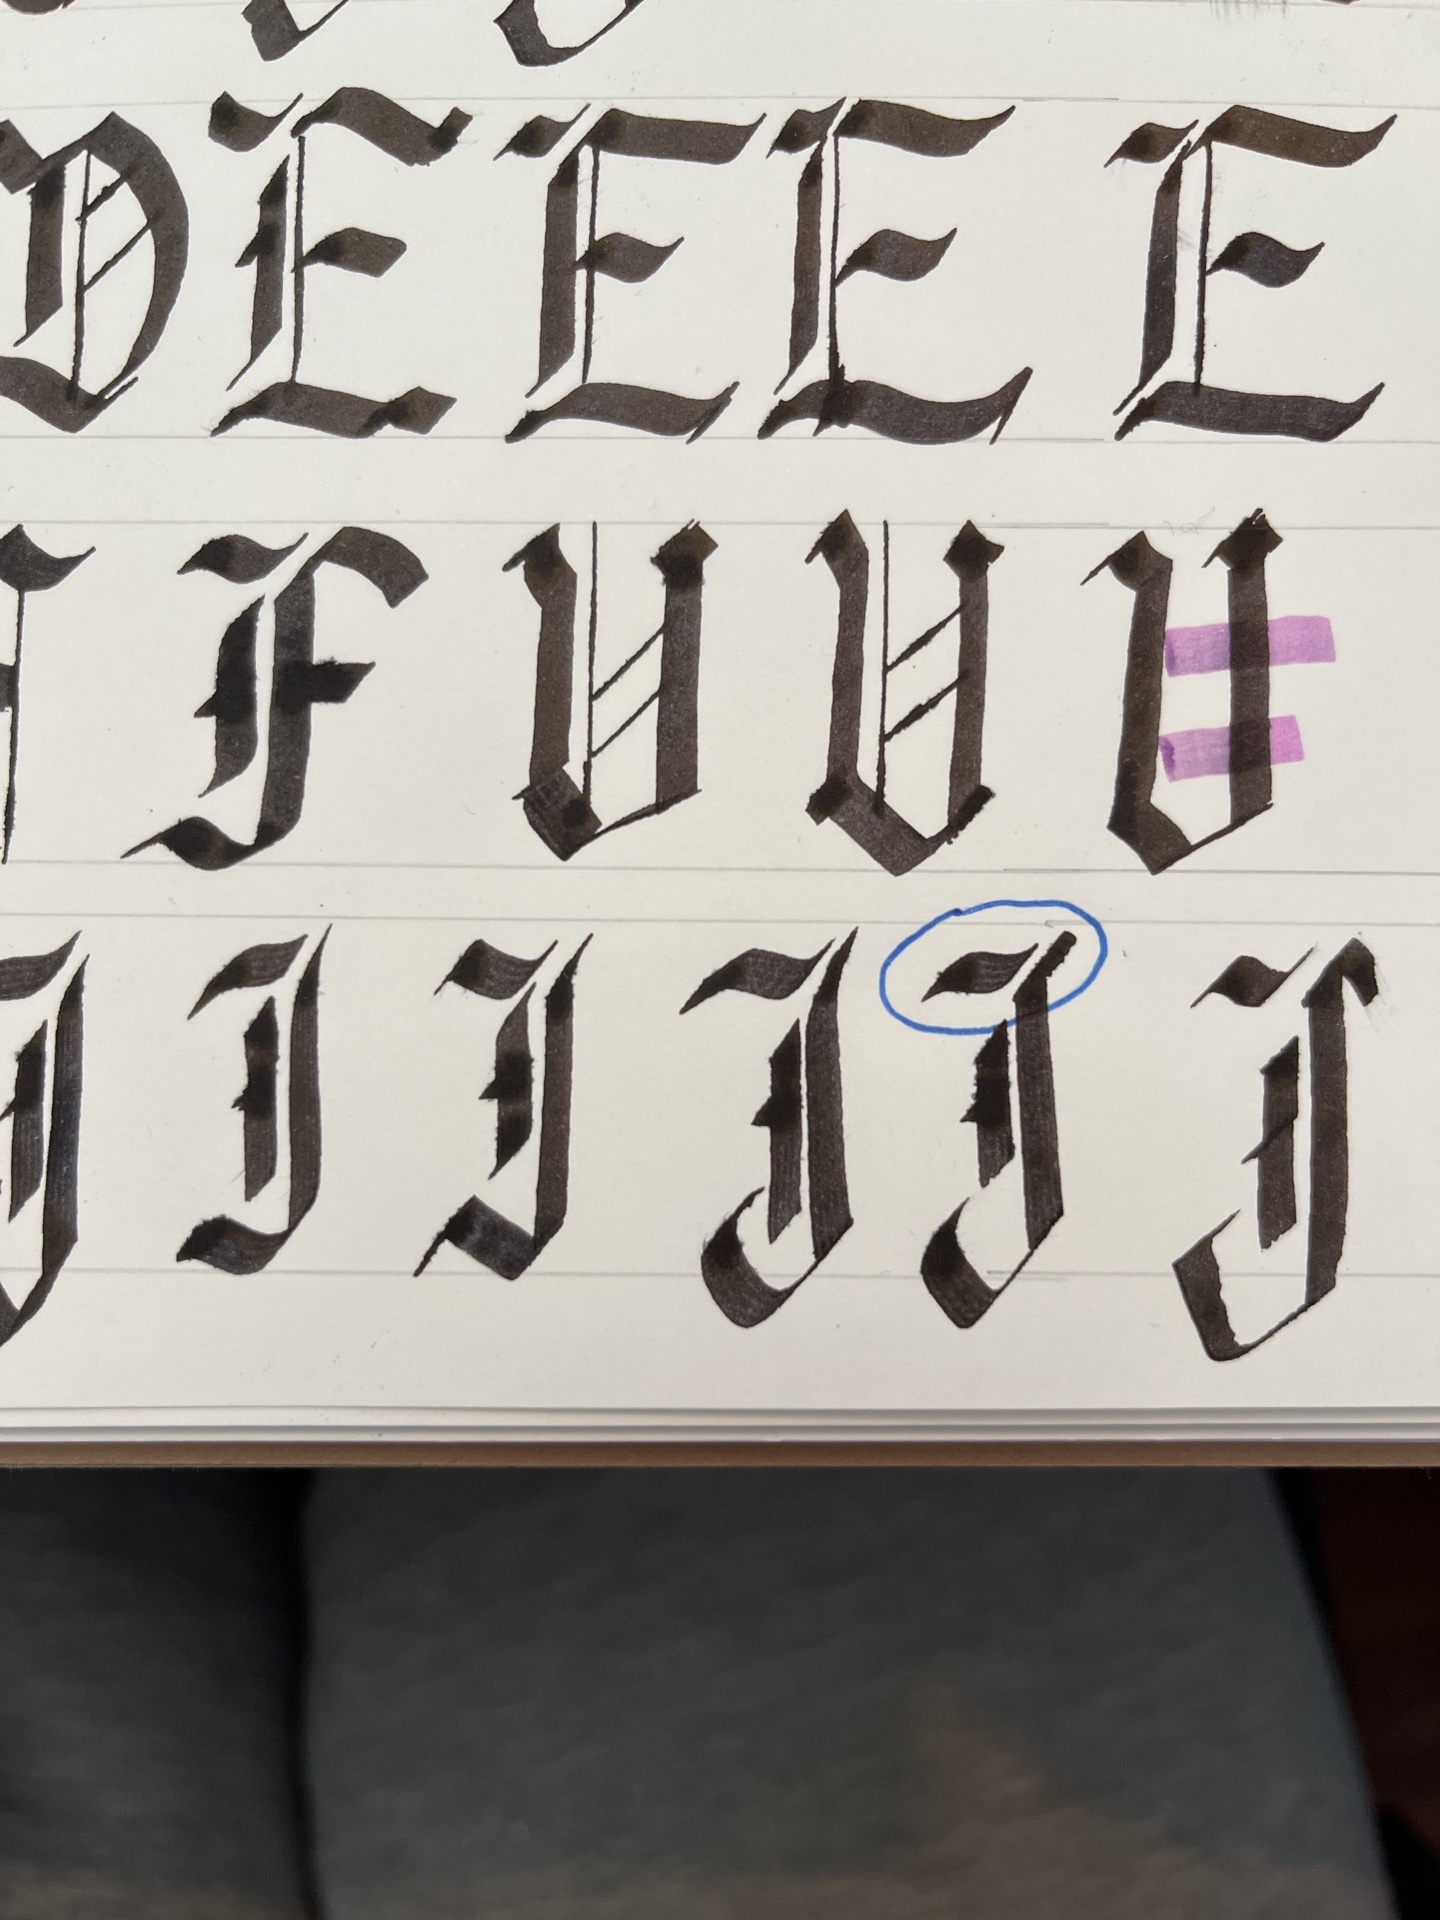 D E E E E
F U U U
J I I J J J